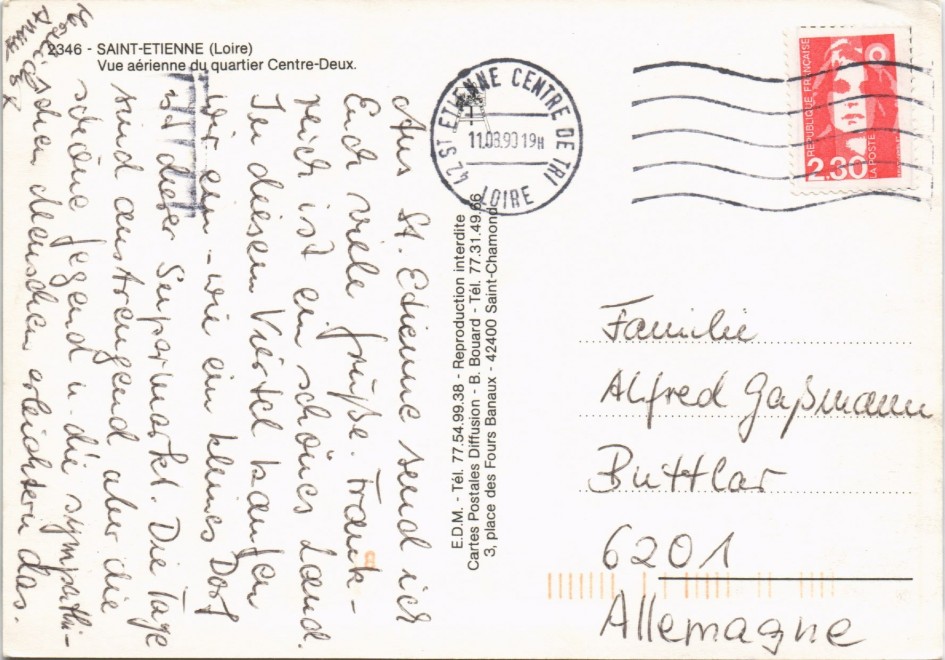 2346 - SAINT-ETIENNE (Loire)
Vue aérienne du quartier Centre-Deux.
42 ST ETIENNE CENTRE DE TRI
11.08.90 19H
LOIRE
REPUBLIQUE FRANÇAISE
2.30
LA POSTE
Aus St. Etienne send ich
Euch viele Grüße. Frank-
reich ist ein schönes Land.
In diesem Viertel kaufen
wir ein - wie ein kleines Dorf
ist dieser Supermarkt. Die Tage
sind anstrengend aber die
schöne Gegend u. die sympathi-
schen Menschen erleichtern das.
E.D.M. - Tél. 77.54.99.38 - Reproduction interdite
Cartes Postales Diffusion - B. Bouard - Tél. 77.31.49.66
3, place des Fours Banaux - 42400 Saint-Chamond
Familie
Alfred Gaßmann
Buttlar
6201
Allemagne